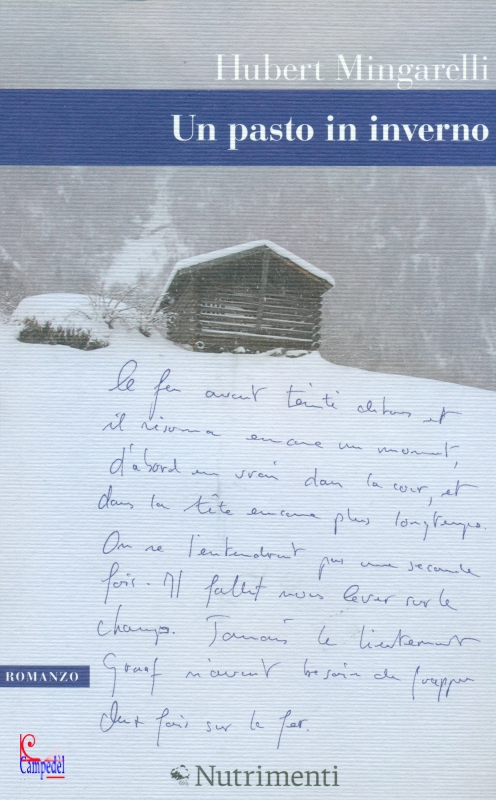 Hubert Mingarelli
Un pasto in inverno
Le fer avait teinté dehors et
il résonna encore un moment,
d'abord en vrai dans la cour, et
dans la tête encore plus longtemps.
On ne l'entendrait pas une seconde
fois. Il fallut nous lever sur le
champ. Jamais le lieutenant
Graaf n'avait besoin de frapper
deux fois sur le fer.
ROMANZO
Campedèl
Nutrimenti